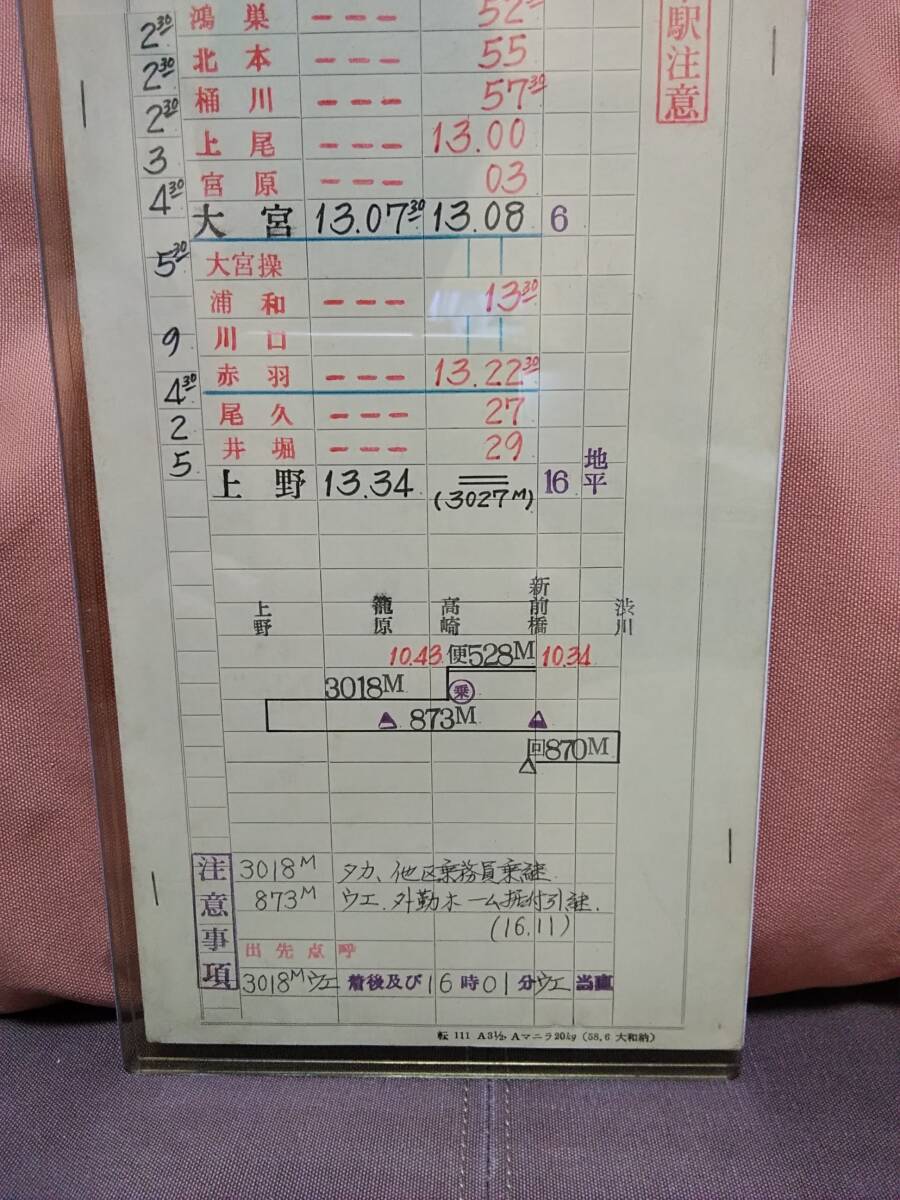 鴻巣 --- 52³⁰
2³⁰
駅注意
北本 --- 55
2³⁰
桶川 --- 57³⁰
2³⁰
上尾 --- 13.00
3
宮原 --- 03
4³⁰
大宮 13.07³⁰ 13.08 6
5³⁰
大宮操
浦和 --- 13³⁰
9
川口
赤羽 --- 13.22³⁰
4³⁰
尾久 --- 27
2
井堀 --- 29
5
上野 13.34 (3027M) 16 地平
上野 籠原 高崎 新前橋 渋川
10.43 便528M 10.34
3018M 乗
873M
回870M
注意事項
3018M タカ、他区乗務員乗継
873M ウエ.外勤ホーム据付引継.
(16.11)
出先点呼
3018Mウエ 着後及び16時01分ウエ当直
転 111 A3½ Aマニラ20kg (58.6 大和納)